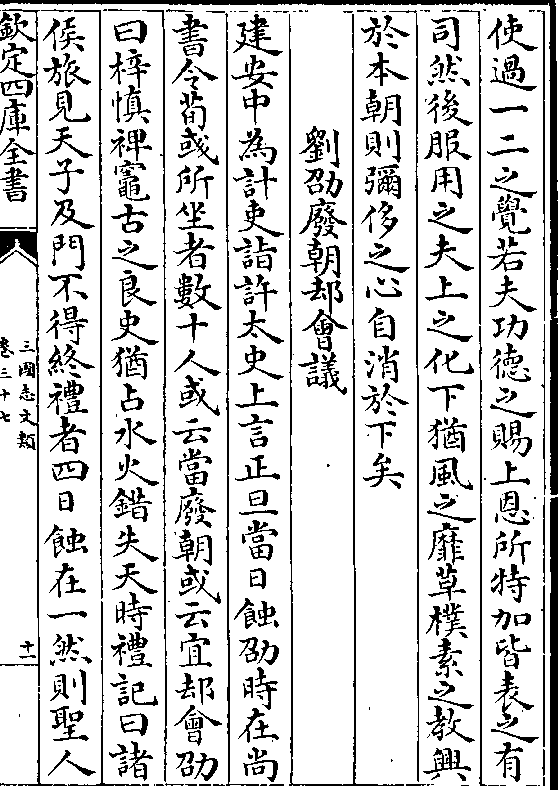 使過一二之覺若夫功德之賜上恩所特加皆表之有
司然後服用之夫上之化下猶風之靡草樸素之教興
於本朝則彌侈之心自消於下矣
劉劭廢朝却會議
建安中為計吏詣許太史上言正旦當日蝕劭時在尚
書令荀彧所坐者數十人或云當廢朝或云宜却會劭
曰梓慎裨竈古之良史猶占水火錯失天時禮記曰諸
侯旅見天子及門不得終禮者四日蝕在一然則聖人
欽定四庫全書
三國志文類
卷三十七
十一